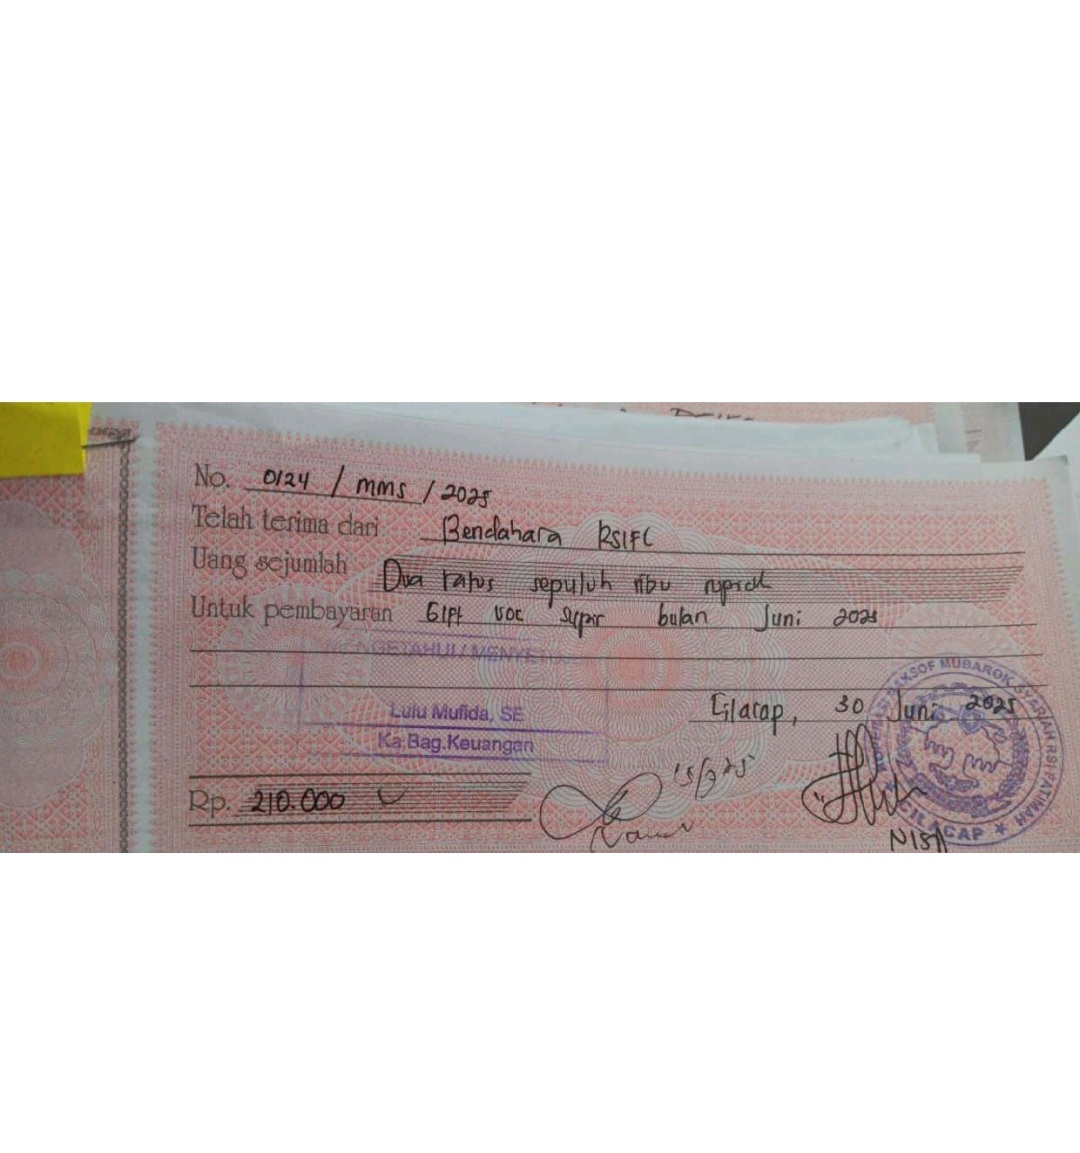 No. 0124 / mms / 2025
Telah terima dari Bendahara RSIFC
Uang sejumlah Dua ratus sepuluh ribu rupiah
Untuk pembayaran Gift voc supir bulan Juni 2025
MENGETAHUI / MENYETUJUI
Lulu Mufida, SE
Ka.Bag.Keuangan
Cilacap, 30 Juni 2025
MAKSOF MUBAROK SYARIAH RSI FATIMAH
CILACAP
Rp. 210.000
NISA